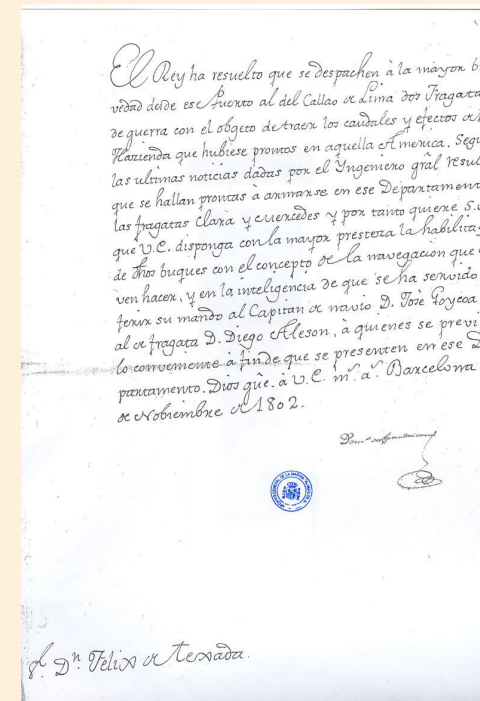 El Rey ha resuelto que se despachen à la mayor b
vedad desde ese Puerto al del Callao de Lima dos Fragata
de guerra con el objeto de traer los caudales y efectos de
Hazienda que hubiese prontos en aquella America. Segu
las ultimas noticias dadas por el Ingeniero gral resul
que se hallan prontas à armarse en ese Departament
las fragatas Clara y Mercedes y por tanto quiere S.
que V.E. disponga con la mayor presteza la habilita
de dhos buques con el concepto de la navegacion que
ven hacer, y en la inteligencia de que se ha servido
ferir su mando al Capitan de navio D. Josè Goycoa
al de fragata D. Diego Aleson, à quienes se previ
lo conveniente à fin de que se presenten en ese D
partamento. Dios gûe. à V.E. m.s a.s Barcelona
de Noviembre de 1802.
Dom.o
S.r D.n Felix de Texada.